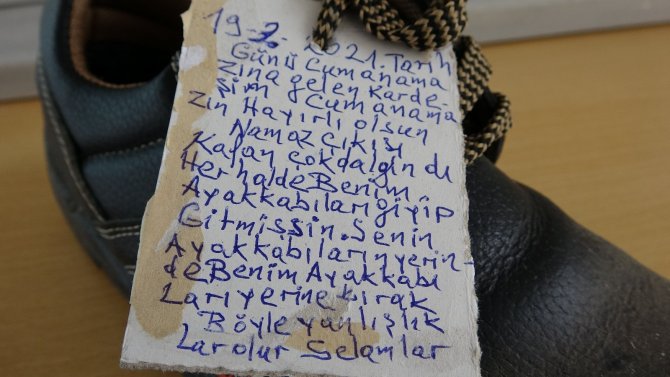 19-2-2021. Tarih
Günü Cumanama
Zina gelen Karde-
şim Cumanama
Zın Hayırlı olsun
Namaz Çıkışı
Kafan çokdalgındı
HerhaldeBenim
Ayakkabılarıgiyip
Gitmişsin. Senin
Ayakkabılarınyerin-
deBenim Ayakkabı
Larıyerine bırak
Böyle yanlışlık
Larolur Selamlar